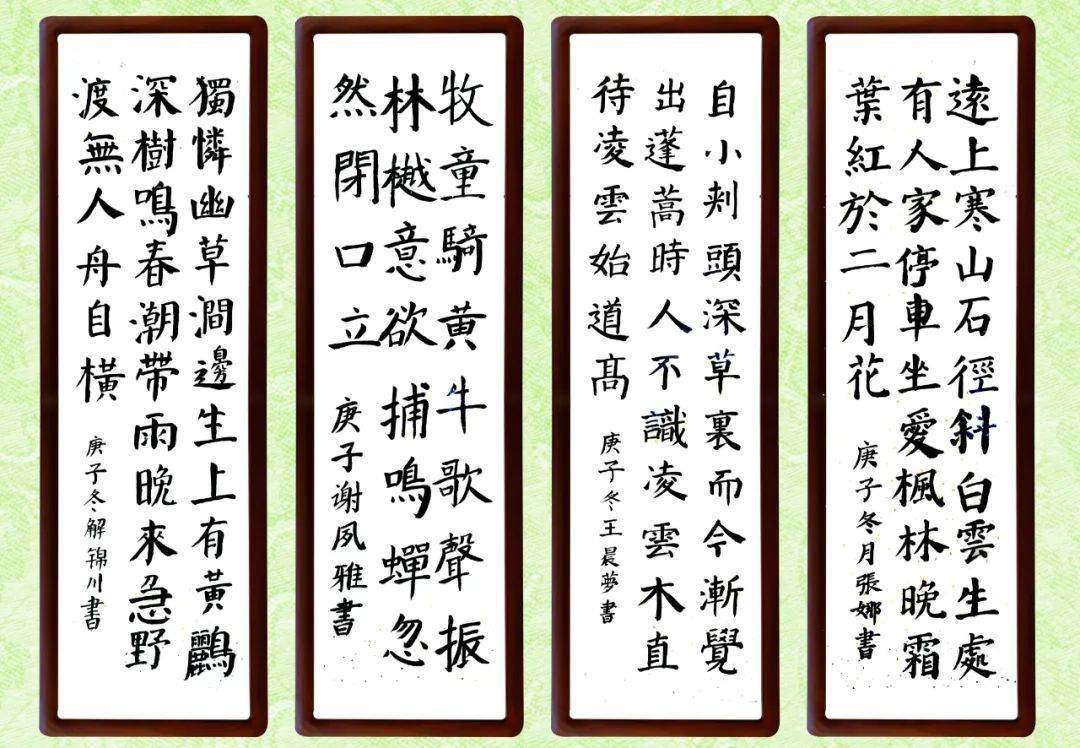 遠上寒山石徑斜白雲生處
有人家停車坐愛楓林晚霜
葉紅於二月花
庚子冬月張娜書
自小刾頭深草裏而今漸覺
出蓬蒿時人不識凌雲木直
待凌雲始道髙
庚子冬王晨夢書
牧童騎黄牛歌聲振
林樾意欲捕鳴蟬忽
然閉口立
庚子谢夙雅書
獨憐幽草澗邊生上有黄鸝
深樹鳴春潮帶雨晚來急野
渡無人舟自橫
庚子冬解锦川書